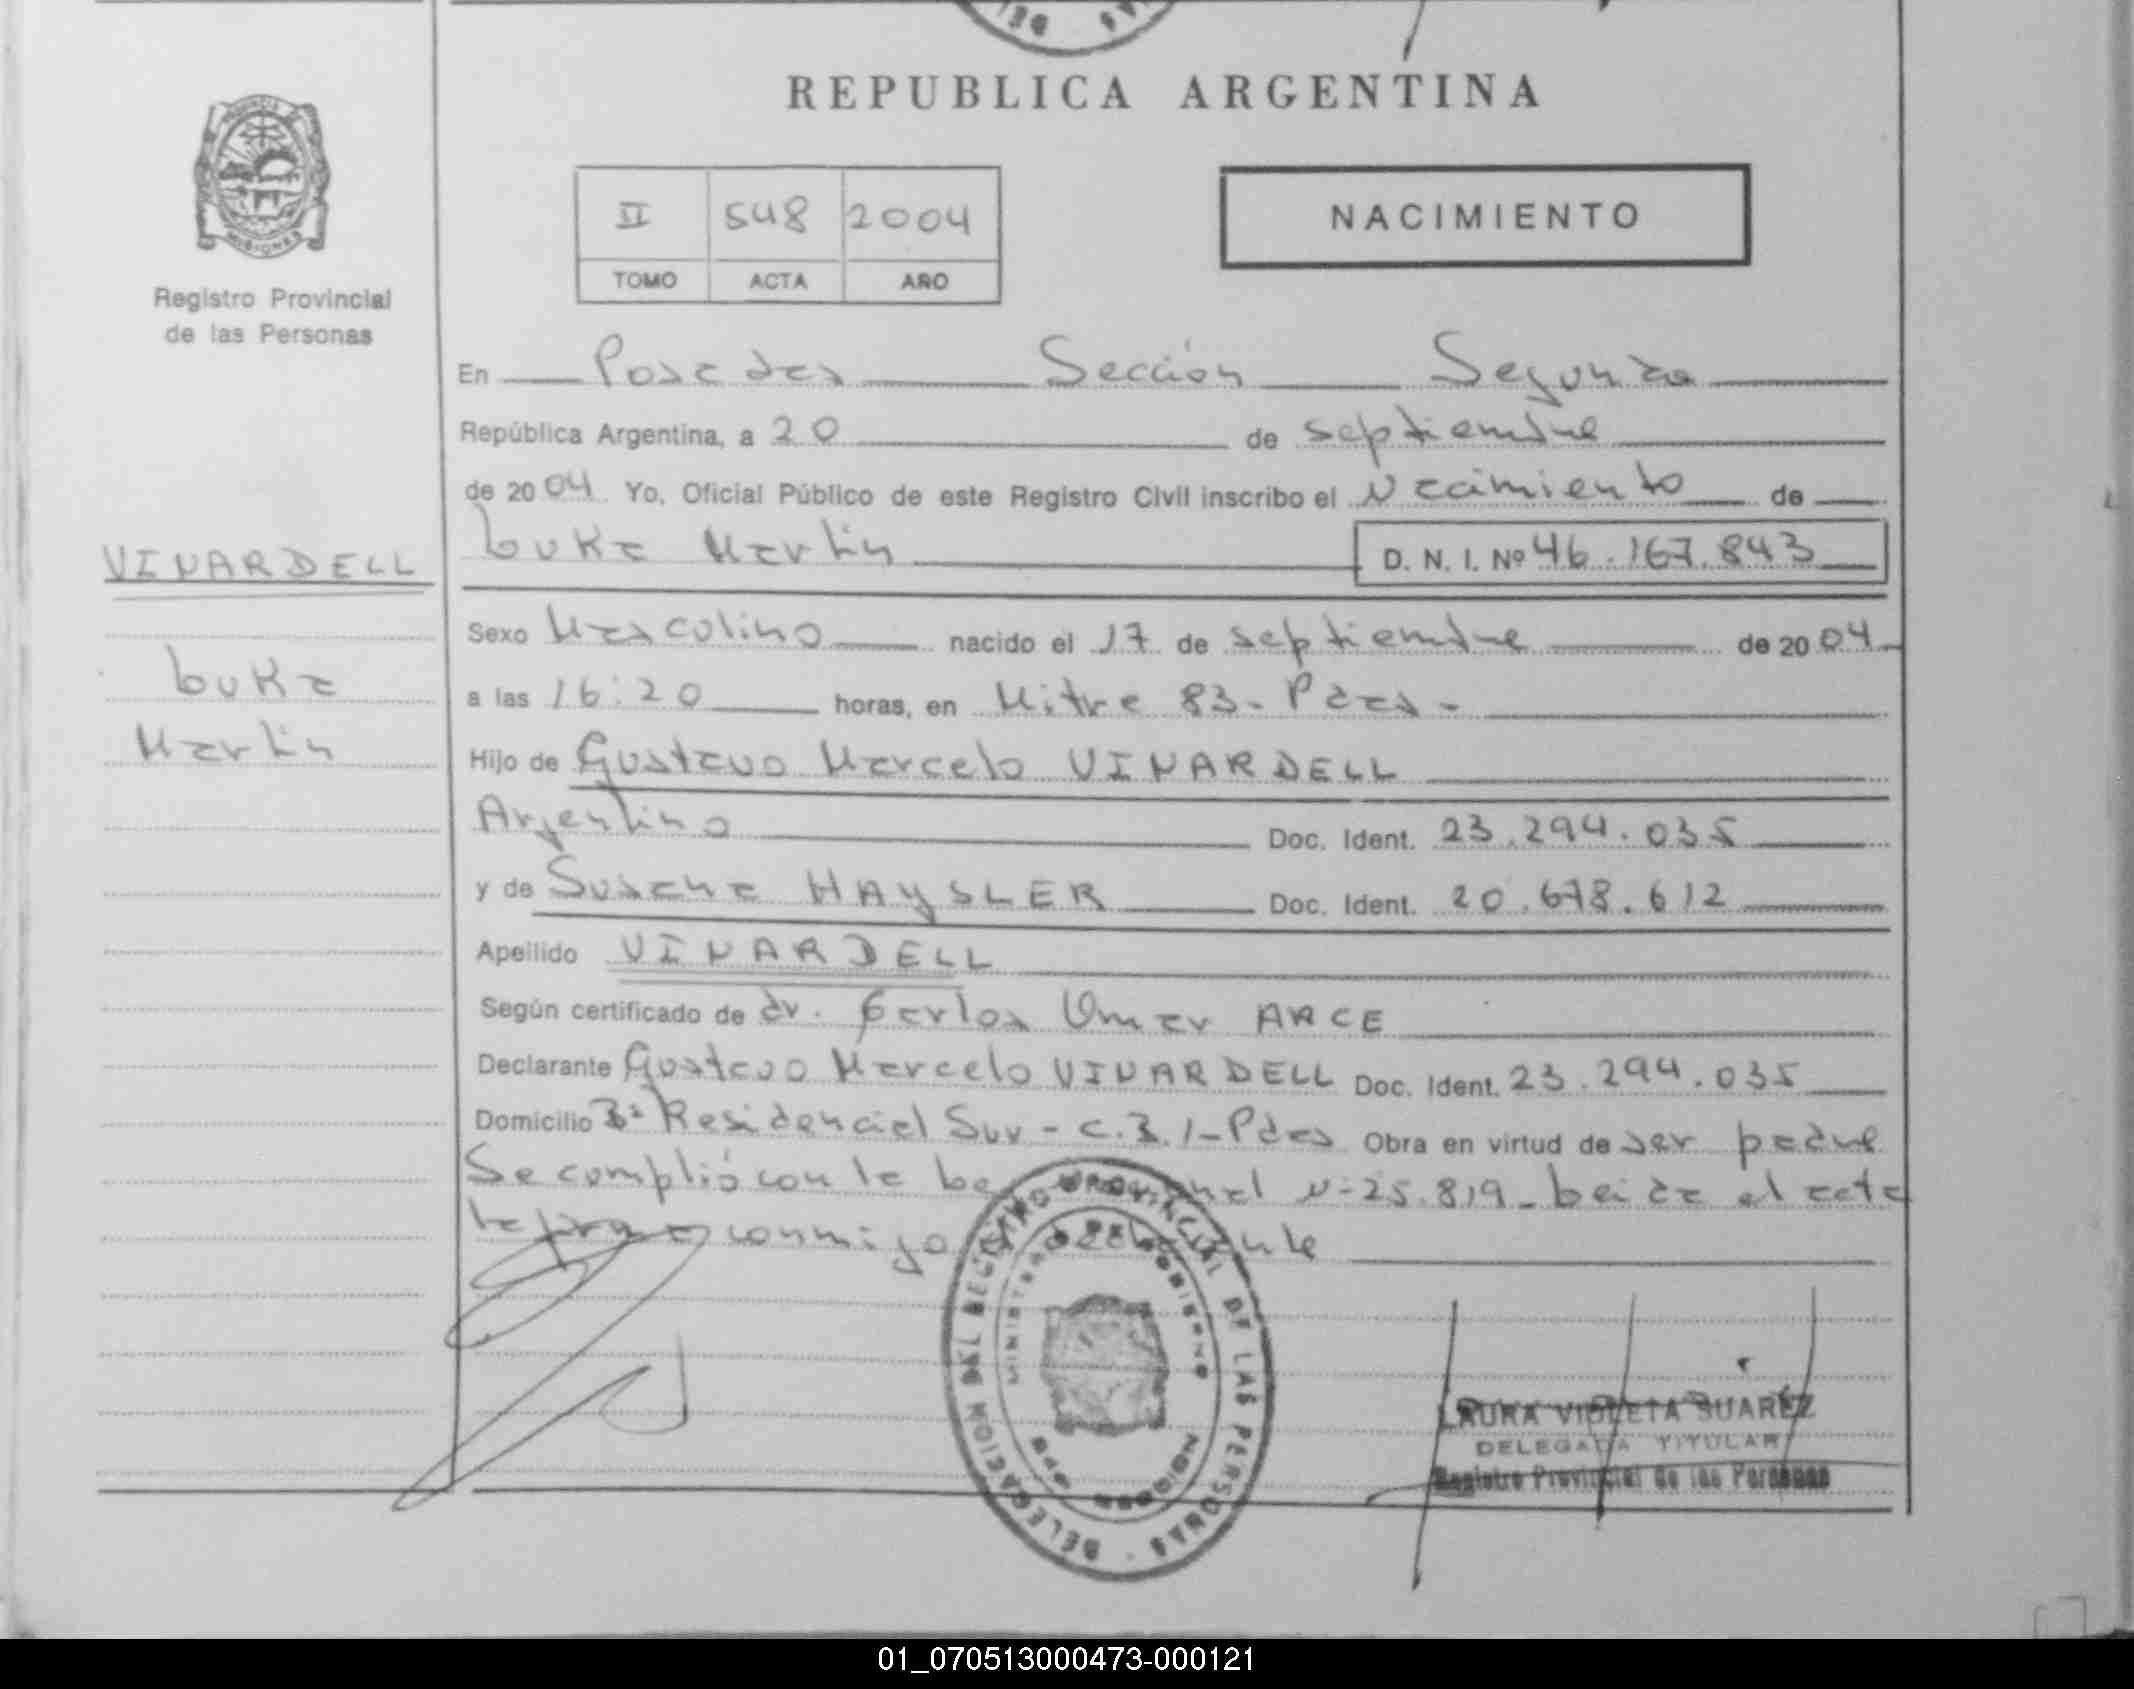 REPUBLICA ARGENTINA
PROVINCIA
MISIONES
Registro Provincial
de las Personas
II 548 2004
TOMO ACTA AÑO
NACIMIENTO
En Posadas Sección Segunda
República Argentina, a 20 de septiembre
de 2004 Yo, Oficial Público de este Registro Civil inscribo el Nacimiento de
Luka Martin D. N. I. Nº 46.167.843
VINARDELL
Luka
Martin
Sexo Masculino nacido el 17 de septiembre de 2004
a las 16:20 horas, en Mitre 83 - Pdas -
Hijo de Gustavo Marcelo VINARDELL
Argentino Doc. Ident. 23.294.035
y de Susana HAYSLER Doc. Ident. 20.678.612
Apellido VINARDELL
Según certificado de dr. Carlos Omar ARCE
Declarante Gustavo Marcelo VINARDELL Doc. Ident. 23.294.035
Domicilio Bº Residencial Sur - C. 31 - Pdas Obra en virtud de ser padre
Se complió con la nal Nº 25.819 - Leida el acta
la firma conmigo
DELEGACION DEL REGISTRO PROVINCIAL DE LAS PERSONAS
MINISTERIO DE GOBIERNO
MISIONES
LAURA VIOLETA SUAREZ
DELEGADA TITULAR
Registro Provincial de las Personas
01_070513000473-000121